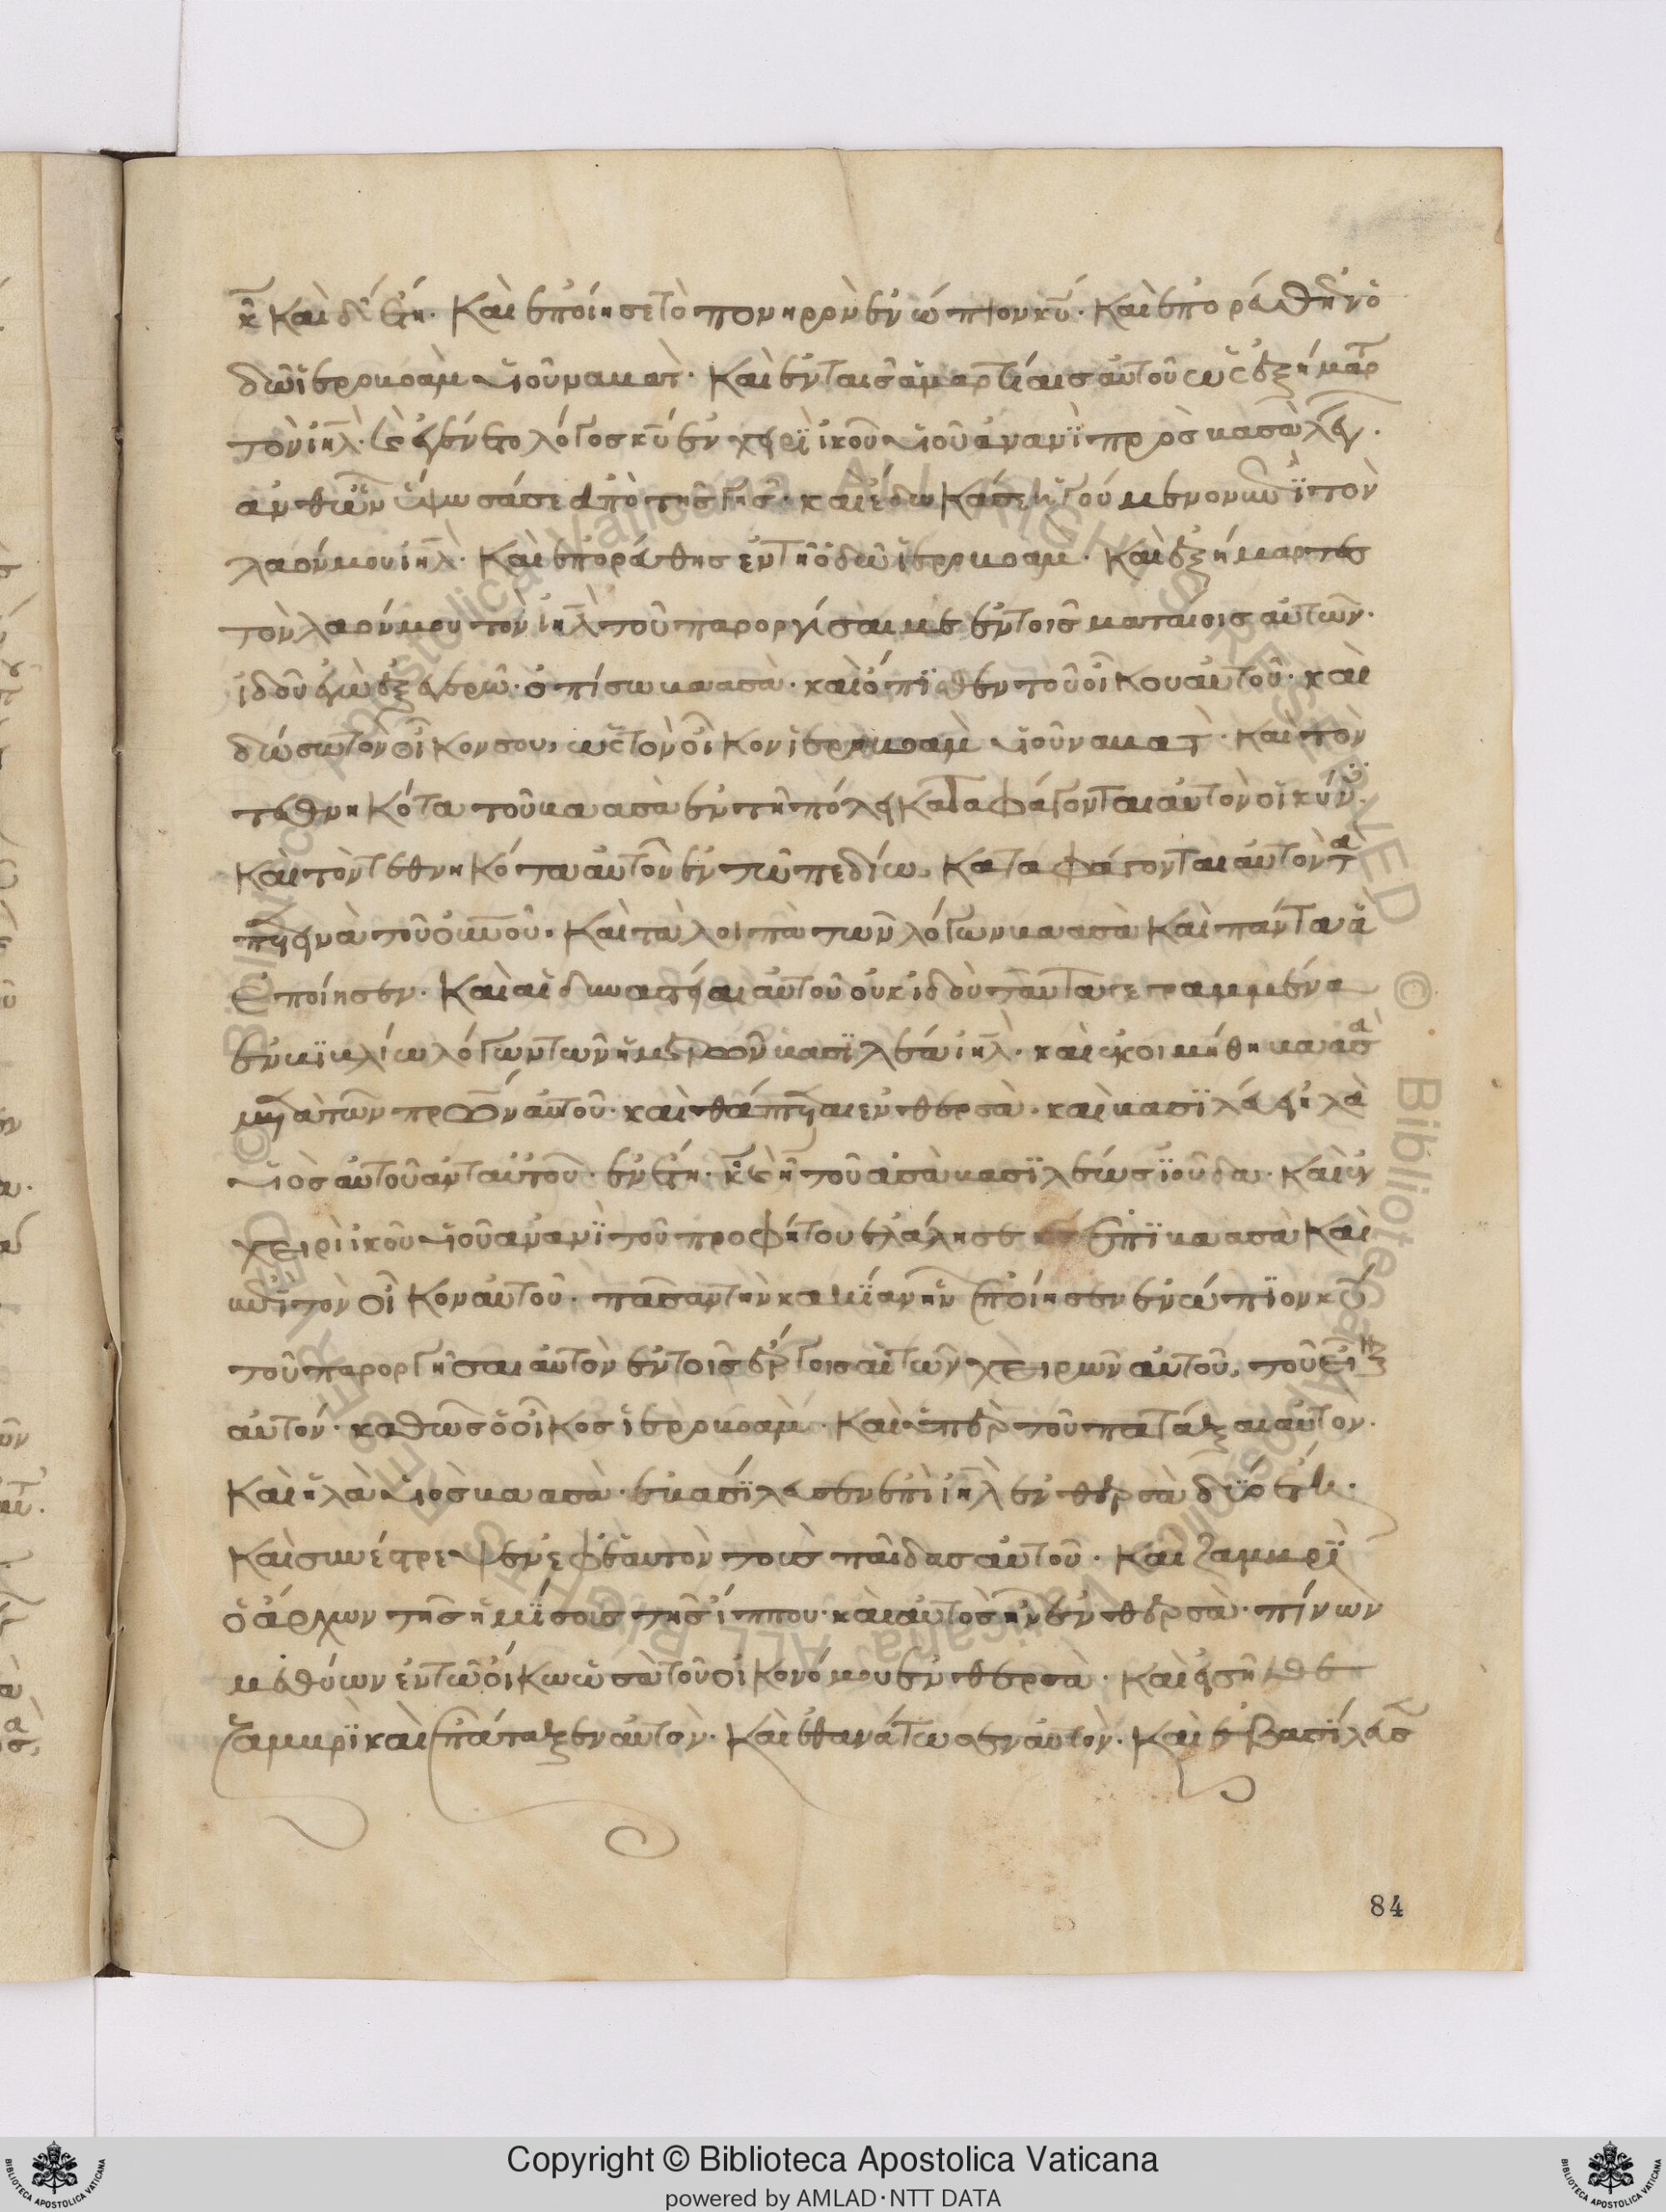 κ̅ καὶ δ̅ ἔτη. καὶ ἐποίησε τὸ πονηρὸν ἐνώπιον κ̅υ̅. καὶ ἐπορεύθη ἐν ὁ
δῶ ἱεροβοὰμ υἱοῦ ναβάτ. καὶ ἐν ταῖς ἁμαρτίαις αὐτοῦ ὡς ἐξήμαρτ
τὸν ι̅η̅λ̅. καὶ ἐγένετο λόγος κ̅υ̅ ἐν χειρὶ ἰοῦ υἱοῦ ἀνανὶ πρὸς βαασὰ λέγει.
ἀνθῶν ὕψωσά σε ἀπὸ τῆς γῆς. καὶ ἔδωκά σε ἡγούμενον ἐπὶ τὸν
λαόν μου ι̅η̅λ̅. καὶ ἐπορεύθης ἐν τῆ ὁδῶ ἱεροβοαμ. καὶ ἐξήμαρτες
τὸν λαόν μου τὸν ι̅η̅λ̅ τοῦ παροργίσαι με ἐν τοῖς ματαίοις αὐτῶν.
ἰδοῦ ἐγὼ ἐξεγερῶ. ὀπίσω βαασὰ. καὶ ὄπισθεν τοῦ οἴκου αὐτοῦ. καὶ
δώσω τὸν οἶκον σου, ὡς τὸν οἶκον ἱεροβοαμ υἱοῦ ναβατ. καὶ τὸν
τεθνηκότα τοῦ βαασὰ ἐν τῆ πόλει καταφάγονται αὐτὸν οἱ κύν.
καὶ τὸν τεθνηκότα αὐτοῦ ἐν τῶ πεδίω, καταφάγονται αὐτὸν τὰ
πετεινὰ τοῦ ο̅υ̅ν̅οῦ. καὶ τὰ λοιπὰ τῶν λόγων βαασὰ καὶ πάντα ἃ
ἐποίησεν. καὶ αἱ δυναστεῖαι αὐτοῦ οὐκ ἰδοὺ πάντα γεγραμμένα
ἐν βιβλίω λόγων τῶν ἡμερῶν βασιλέων ι̅η̅λ̅. καὶ ἐκοιμήθη βαασὰ
μετὰ τῶν πρων αὐτοῦ. καὶ θάπτεται ἐν θερσὰ. καὶ βασιλεύει ἠλὰ
υἱὸς αὐτοῦ ἀντ αὐτοῦ. ἐν ἔτει κ̅ καὶ η̅ τοῦ ἀσὰ βασιλέως ἰοῦδα. καὶ ἐν
χειρὶ ἰοῦ υἱοῦ ἀνανὶ τοῦ προφήτου ἐλάλησε κ̅ς̅ ἐπὶ βαασὰ καὶ
ἐπὶ τὸν οἶκον αὐτοῦ. πᾶσαν τὴν κακίαν ἣν ἐποίησεν ἐνώπιον κ̅υ̅
τοῦ παροργῆσαι αὐτὸν ἐν τοῖς ἔργοις τῶν χειρῶν αὐτοῦ, τοῦ εἶναι
αὐτόν. καθὼς ὁ οἶκος ἱεροβοὰμ. καὶ ὑπὲρ τοῦ πατάξαι αὐτόν.
καὶ ἠλὰ υἱὸς βαασὰ. ἐβασίλευσεν ἐπὶ ι̅η̅λ̅ ἐν θερσὰ δύο ἔτη.
καὶ συνέστρεψεν ἐφ ἑαυτὸν τοὺς παῖδας αὐτοῦ. καὶ ζαμβρὶ
ὁ ἄρχων τῆς ἡμίσους τῆς ἵππου. καὶ αὐτὸς ἦν ἐν θερσὰ. πίνων
μεθύων ἐν τῶ οἴκω ὠσὰ τοῦ οἰκονόμου ἐν θερσὰ. καὶ εἰσῆλθεν
ζαμβρὶ καὶ ἐπάταξεν αὐτὸν. καὶ ἐθανάτωσεν αὐτὸν. καὶ ἐβασίλευσ
84
Copyright © Biblioteca Apostolica Vaticana
powered by AMLAD·NTT DATA